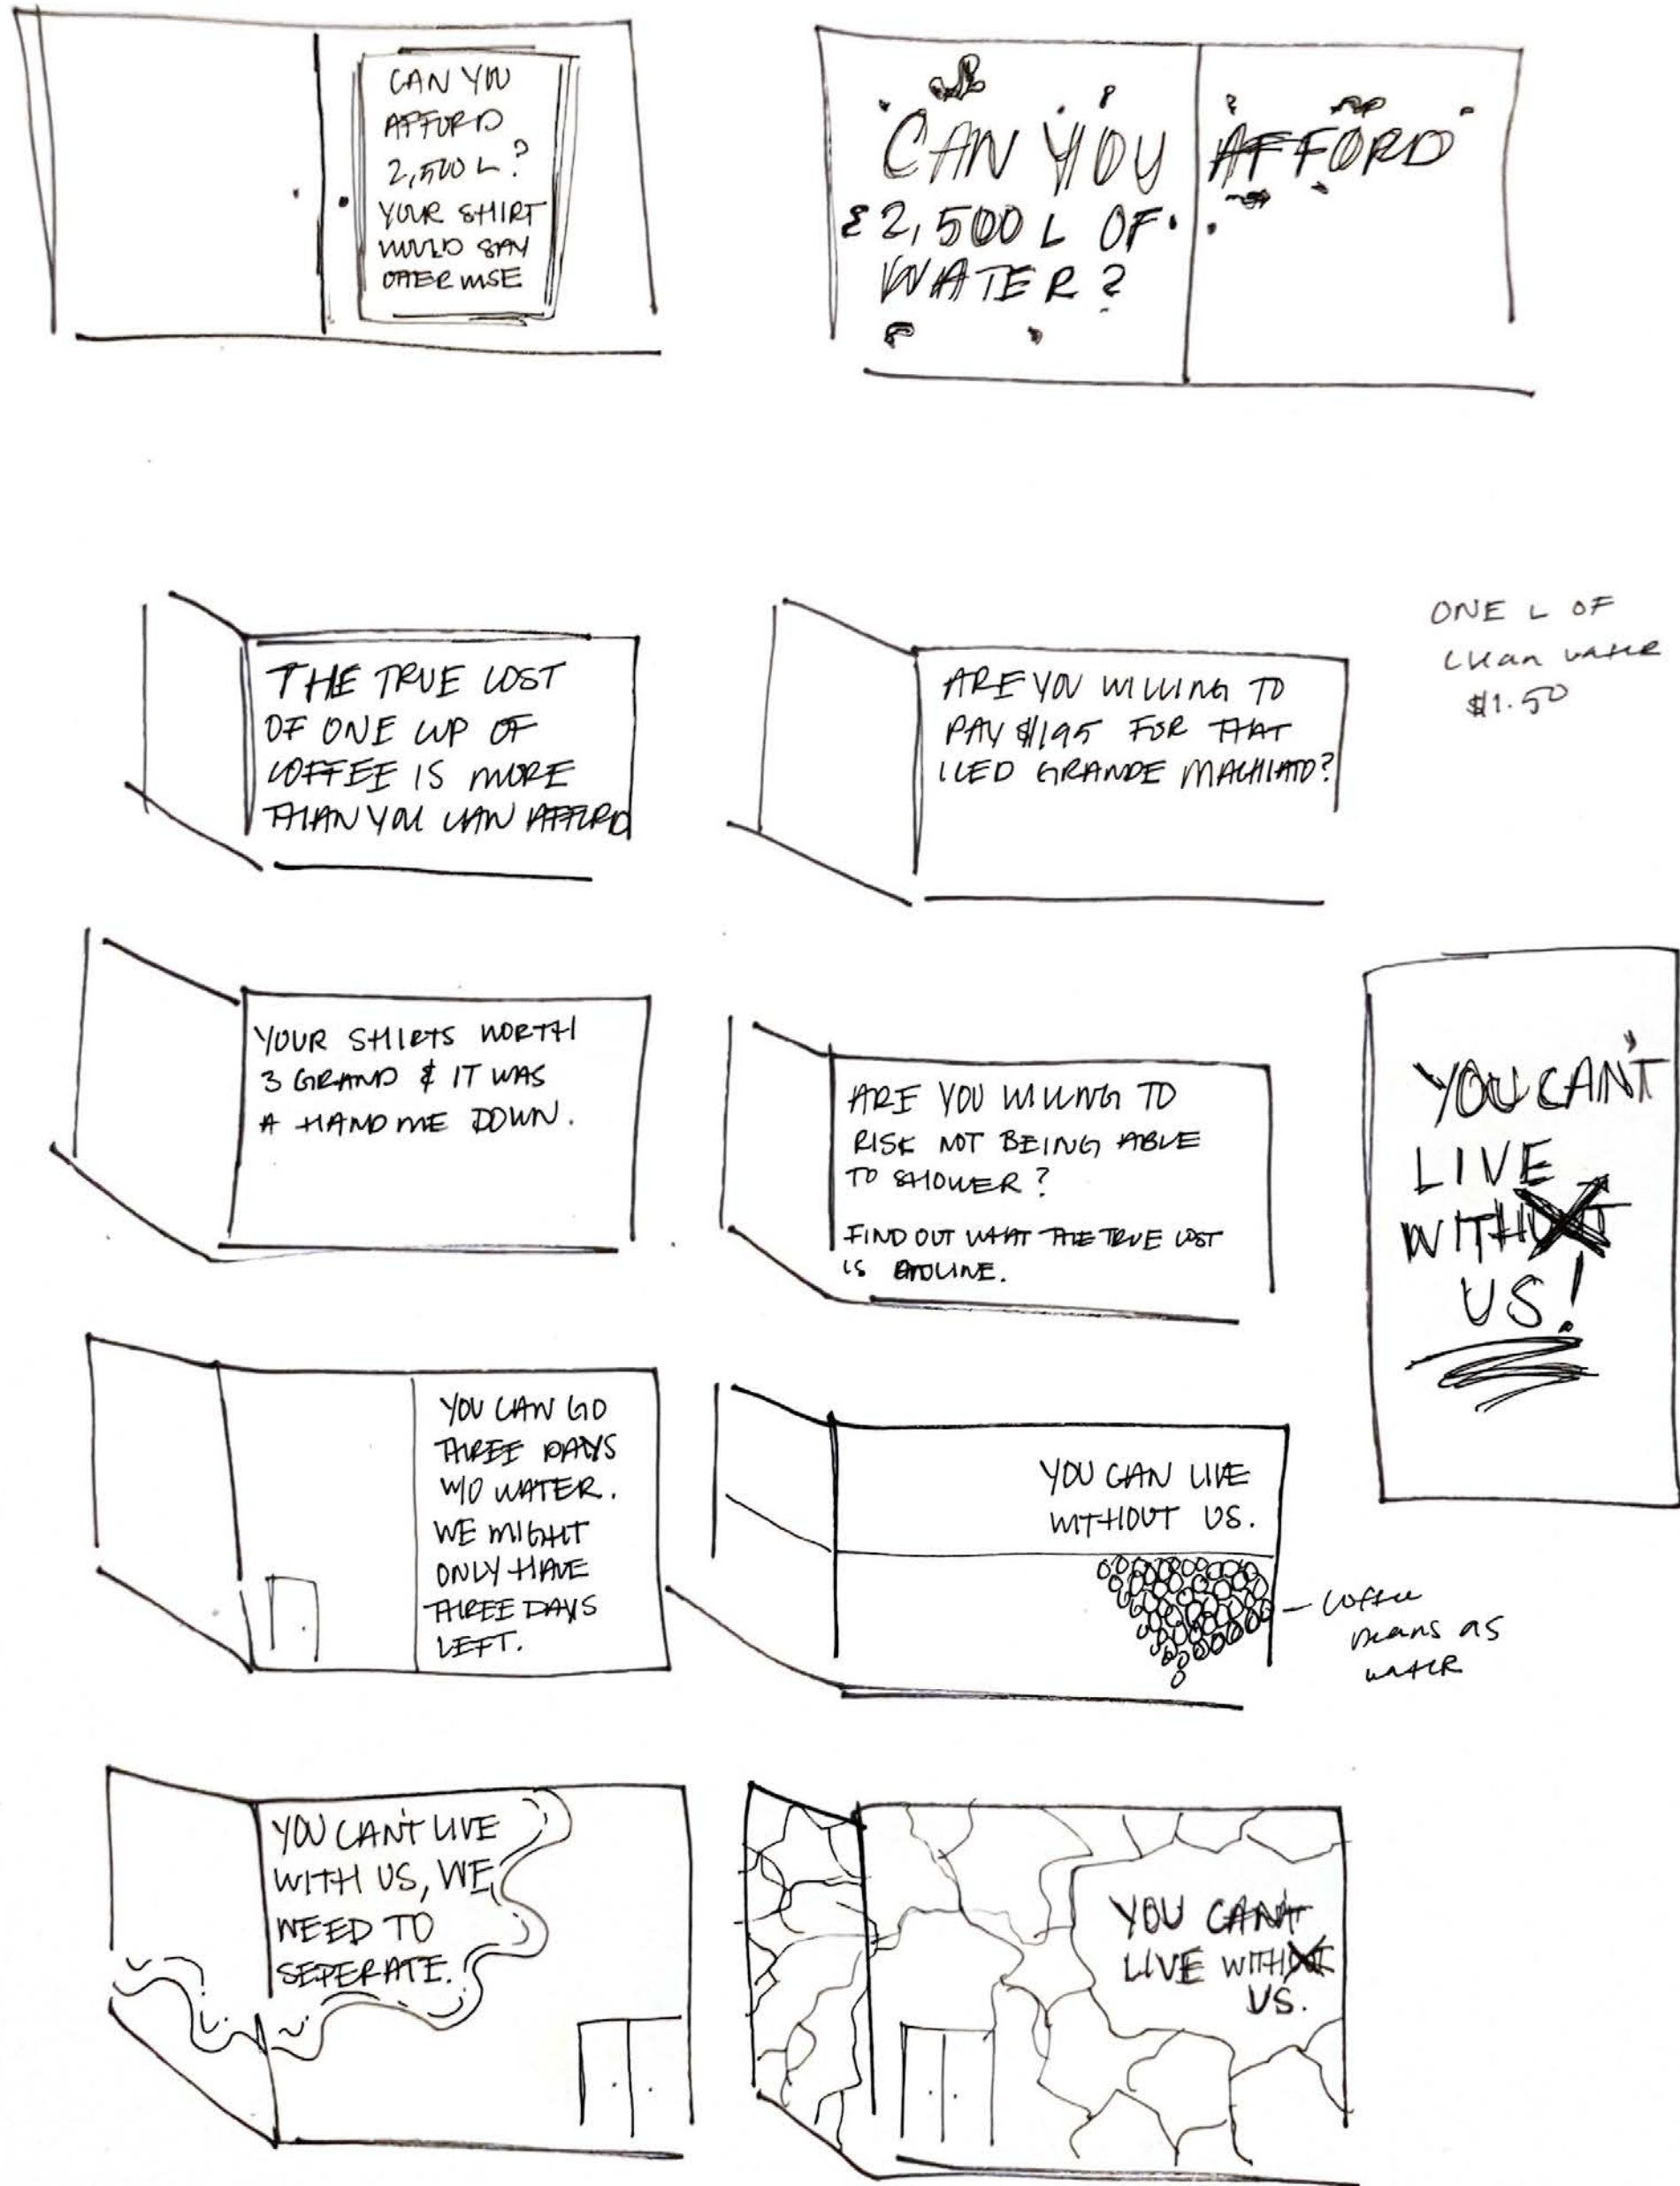 CAN YOU
AFFORD
2,500 L?
YOUR SHIRT
WOULD SAY
OTHERWISE
CAN YOU AFFORD
2,500 L OF
WATER?
THE TRUE COST
OF ONE CUP OF
COFFEE IS MORE
THAN YOU CAN AFFORD
ARE YOU WILLING TO
PAY $1195 FOR THAT
ICED GRANDE MACHIATO?
ONE L OF
clean water
$1.50
YOUR SHIRTS WORTH
3 GRAND & IT WAS
A HAND ME DOWN.
ARE YOU WILLING TO
RISK NOT BEING ABLE
TO SHOWER?
FIND OUT WHAT THE TRUE COST
IS
YOU CAN'T
LIVE
WITHOUT
US!
YOU CAN GO
THREE DAYS
W/O WATER.
WE MIGHT
ONLY HAVE
THREE DAYS
LEFT.
YOU CAN LIVE
WITHOUT US.
coffee
beans as
water
YOU CAN'T LIVE
WITH US, WE
NEED TO
SEPERATE.
YOU CAN'T
LIVE WITHOUT
US.